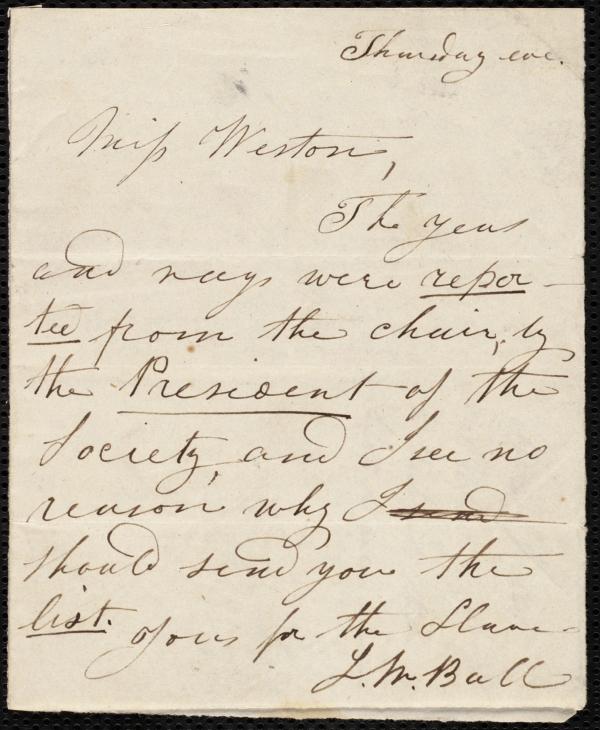 Thursday eve.
Miss Weston,
The yeas
and nays were repor-
ted from the chair, by
the President of the
Society, and I see no
reason why I send
should send you the
list.
Yours for the Slave-
L. M. Ball